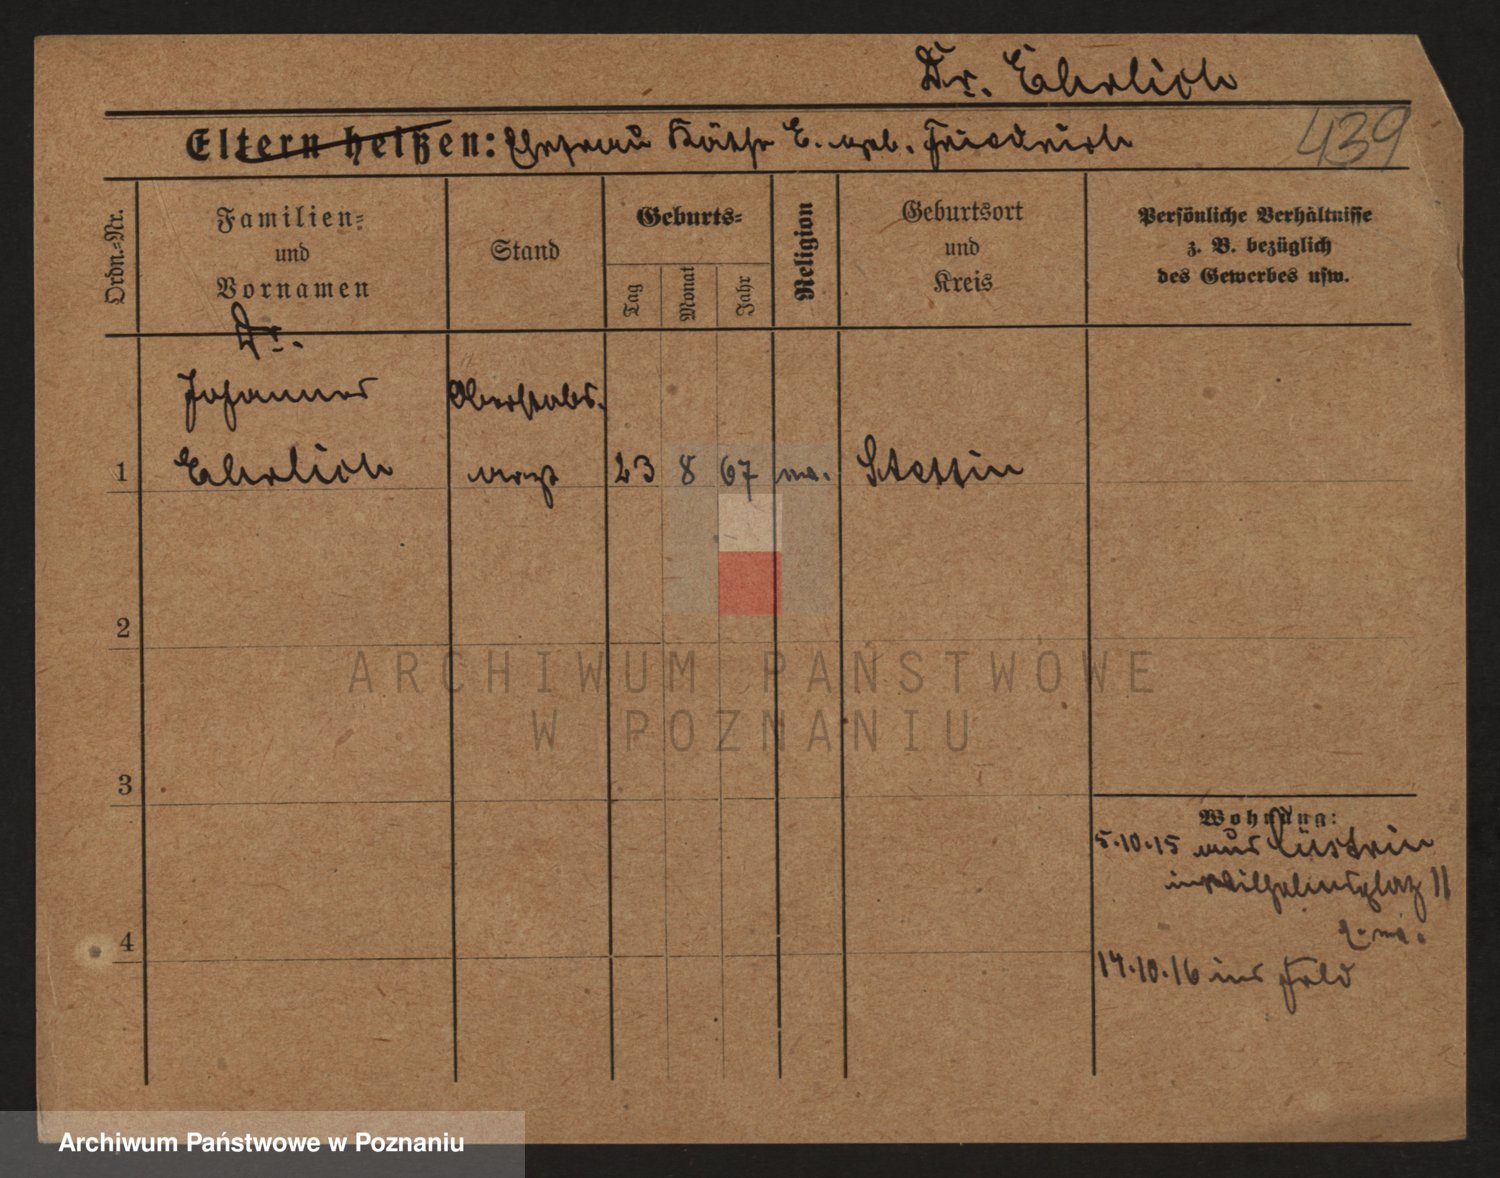 Dr. Ehrlich
Eltern heißen: Ehefrau Käthe E. geb. Friedrich
439
Ordn.-Nr.
Familien-
und
Vornamen
Stand
Geburts-
Tag
Monat
Jahr
Religion
Geburtsort
und
Kreis
Persönliche Verhältnisse
z. B. bezüglich
des Gewerbes usw.
Dr.
Johannes
Oberstabs-
1
Ehrlich
arzt
23
8
67
Stettin
2
ARCHIWUM PAŃSTWOWE
W POZNANIU
3
Wohnung:
5.10.15 aus Küstrin
in Wilhelmsplatz 11
4
17.10.16 ins Feld
Archiwum Państwowe w Poznaniu